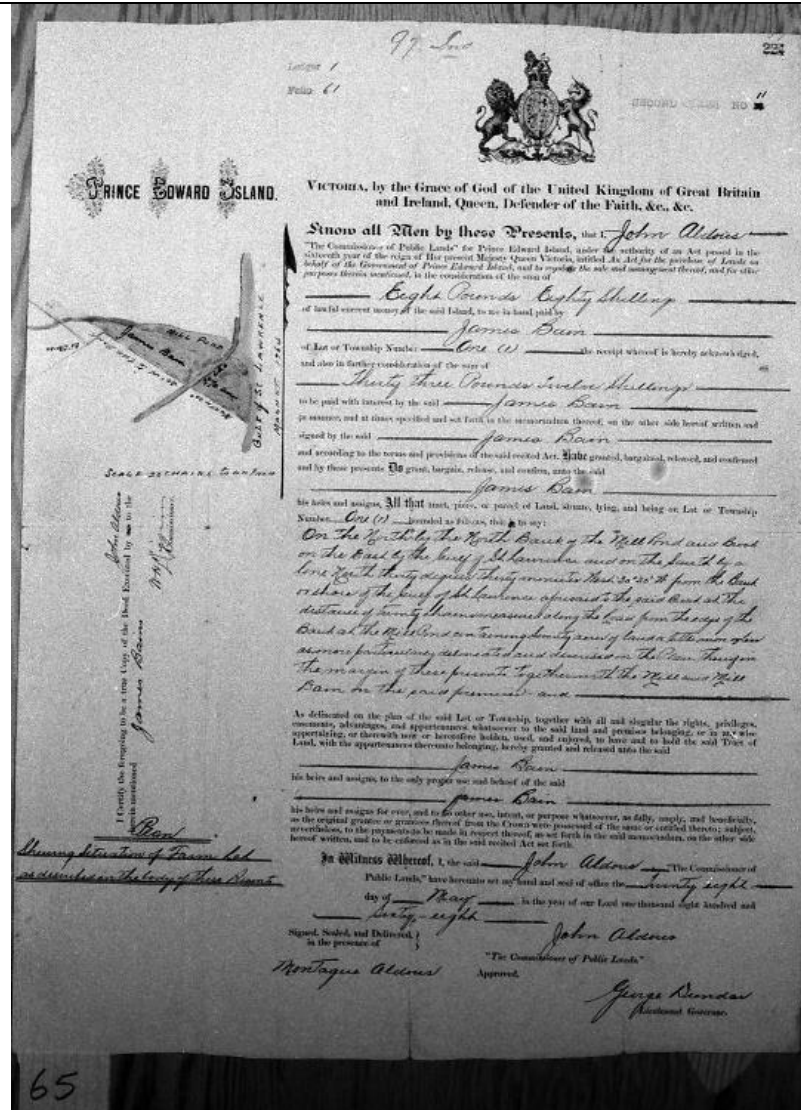 97. Ind
Ledger 1
Folio 61
NO 11
PRINCE EDWARD ISLAND.
VICTORIA, by the Grace of God of the United Kingdom of Great Britain
and Ireland, Queen, Defender of the Faith, &c., &c.
Know all Men by these Presents, that I, John Aldous
"The Commissioner of Public Lands" for Prince Edward Island, under the authority of an Act passed in the
sixteenth year of the reign of Her present Majesty Queen Victoria, intitled An Act for the purchase of Lands on
behalf of the Government of Prince Edward Island, and to regulate the sale and management thereof, and for other
purposes therein mentioned, in the consideration of the sum of
Eight Pounds Eighty Shillings
of lawful current money of the said Island, to me in hand paid by
James Bain
of Lot or Township Number One (1) the receipt whereof is hereby acknowledged,
and also in further consideration of the sum of
Thirty three Pounds Twelve Shillings
to be paid with interest by the said James Bain
in manner, and at times specified and set forth in the memorandum thereof, on the other side hereof written and
signed by the said James Bain
and according to the terms and provisions of the said recited Act. Have granted, bargained, released, and confirmed
and by these presents Do grant, bargain, release, and confirm, unto the said
James Bain
his heirs and assigns, All that tract, piece, or parcel of Land, situate, lying, and being on Lot or Township
Number One (1) bounded as follows, that is to say:
On the North by the North Bank of the Mill Pond and
on the East by the Gulf of St Lawrence and on the South by a
line North thirty degrees thirty minutes West from the Bank
or shore of the Gulf of St Lawrence aforesaid to the said at the
distance of twenty chains measured along the from the edge of the
Bank at the Mill Pond containing acres of land a little more or less
as more particularly delineated and described on the Plan thereof in
the margin of these presents together with the Mill and Mill
on the said premises and
As delineated on the plan of the said Lot or Township, together with all and singular the rights, privileges,
easements, advantages, and appurtenances whatsoever to the said land and premises belonging, or in any wise
appertaining, or therewith now or heretofore holden, used, and enjoyed, to have and to hold the said Tract of
Land, with the appurtenances thereunto belonging, hereby granted and released unto the said
James Bain
his heirs and assigns, to the only proper use and behoof of the said
James Bain
his heirs and assigns for ever, and to no other use, intent, or purpose whatsoever, as fully, amply, and beneficially,
as the original grantee or grantees thereof from the Crown were possessed of the same or entitled thereto; subject,
nevertheless, to the payments to be made in respect thereof, as set forth in the said memorandum, on the other side
hereof written, and to be enforced as in the said recited Act set forth.
In Witness Whereof, I, the said John Aldous "The Commissioner of
Public Lands," have hereunto set my hand and seal of office the twenty eight
day of May in the year of our Lord one thousand eight hundred and
sixty-eight
Signed, Sealed, and Delivered,
in the presence of
Montague Aldous
John Aldous
"The Commissioner of Public Lands."
Approved.
George Dundas
Lieutenant Governor.
James Bain
MILL POND
GULF of ST LAWRENCE
MAGNET 1764
SCALE 20 CHAINS TO AN INCH
I Certify the foregoing to be a true Copy of the Deed Executed by me to the
therein mentioned James Bain
John Aldous
Plan
Shewing Situation of Farm Lot
as described in the body of these Presents
65